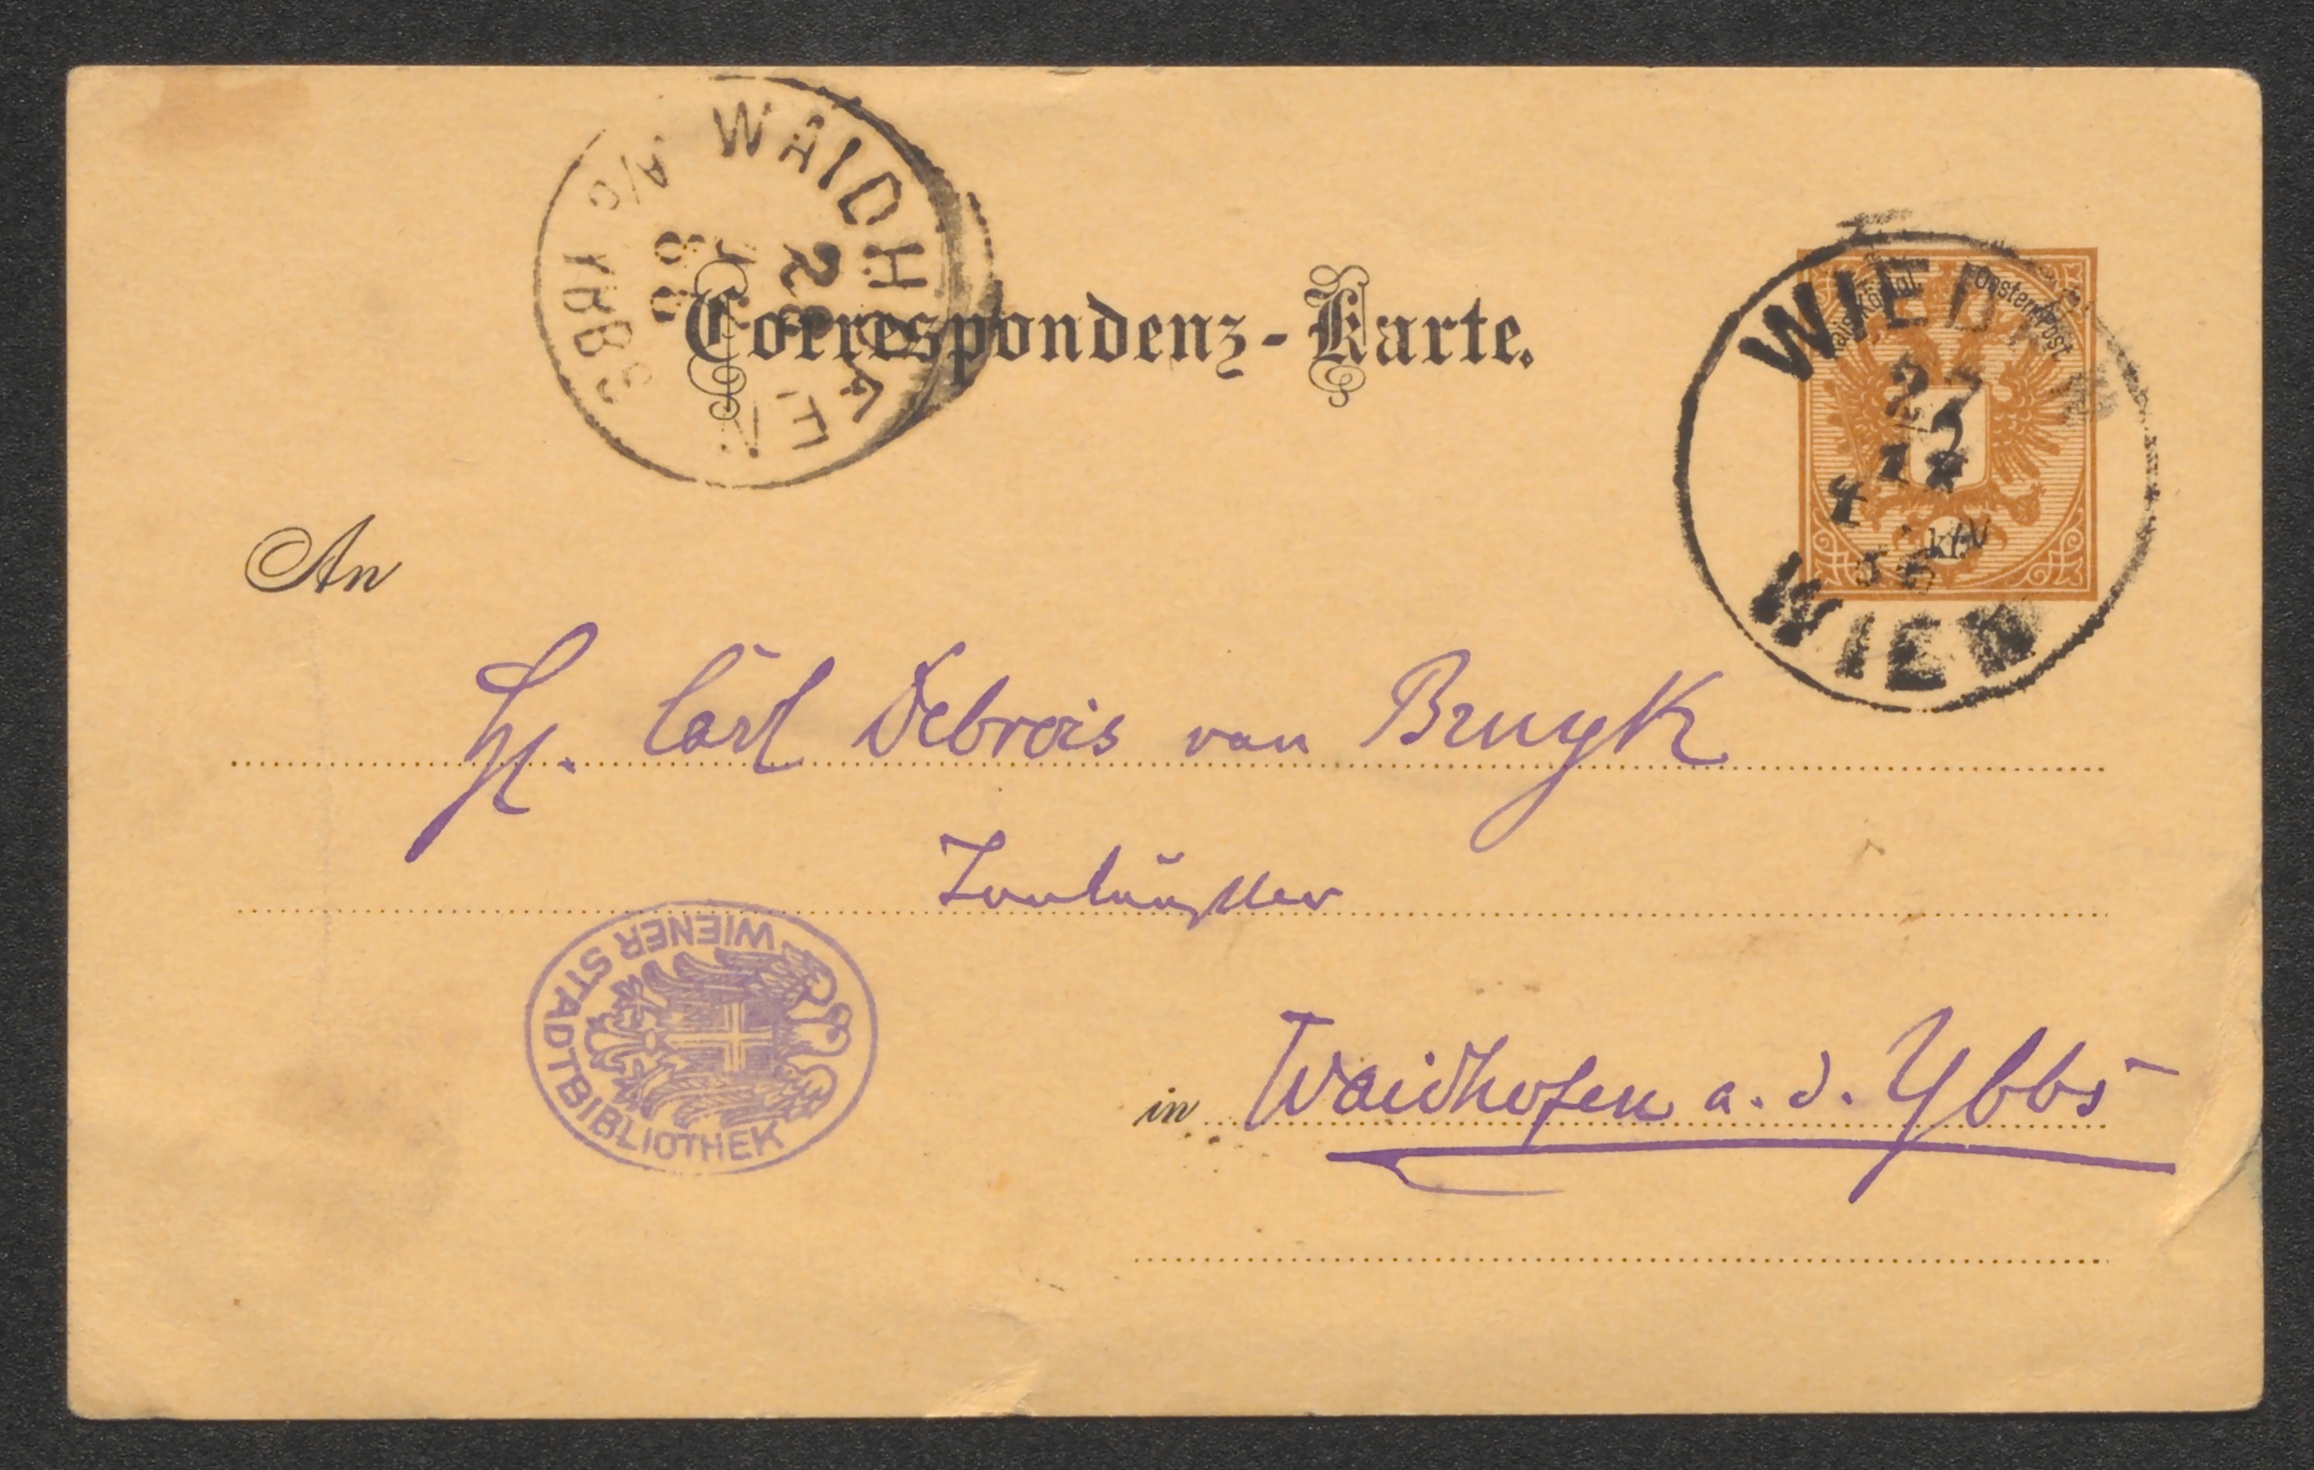 WAIDHOFEN A/D YBBS
2
88
Correspondenz-Karte.
WIEDEN
27
WIEN
An
H. Carl Debrois van Bruyk
Tonkünstler
WIENER STADTBIBLIOTHEK
in Waidhofen a. d. Ybbs